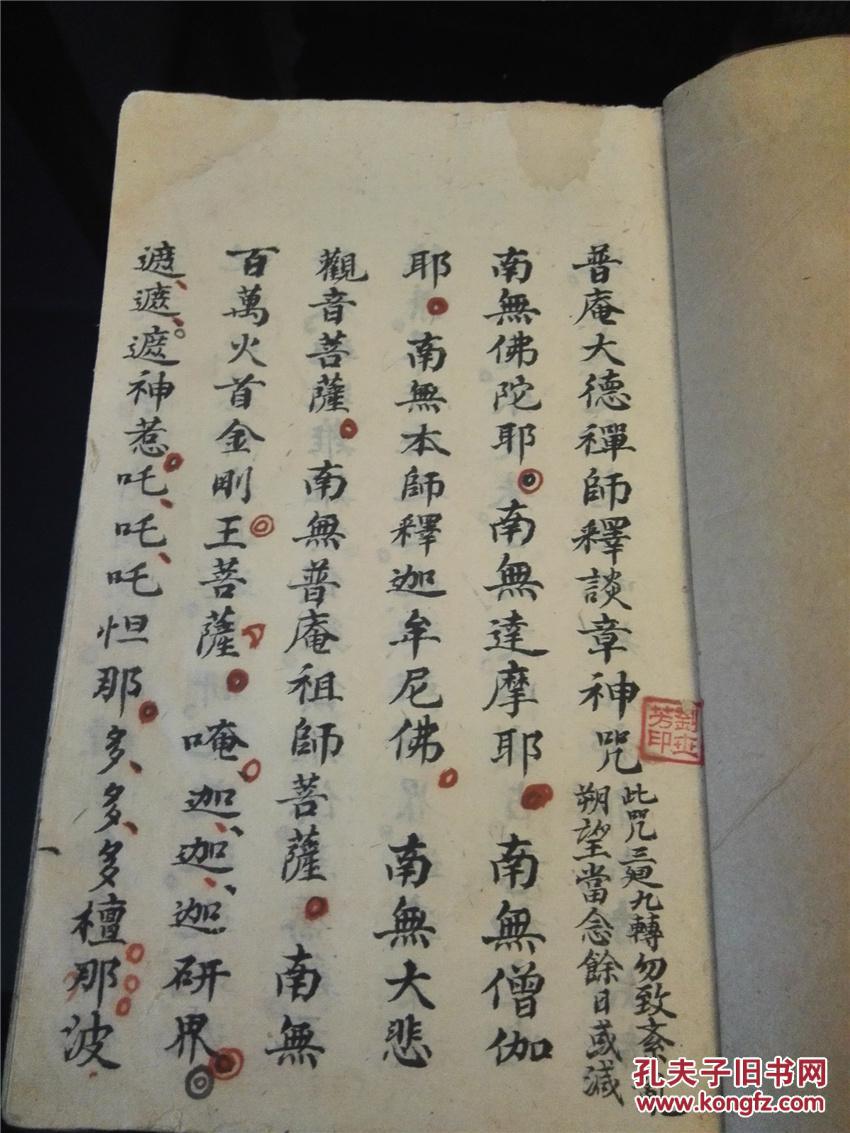 普庵大德禪師釋談章神咒
此咒三廻九轉勿致紊亂
朔望當念餘日或減
南無佛陀耶南無達摩耶南無僧伽
耶南無本師釋迦牟尼佛南無大悲
觀音菩薩南無普庵祖師菩薩南無
百萬火首金剛王菩薩唵迦迦迦研界
遮遮遮神惹吒吒吒怛那多多多檀那波
芳印
孔夫子旧书网
www.kongfz.com